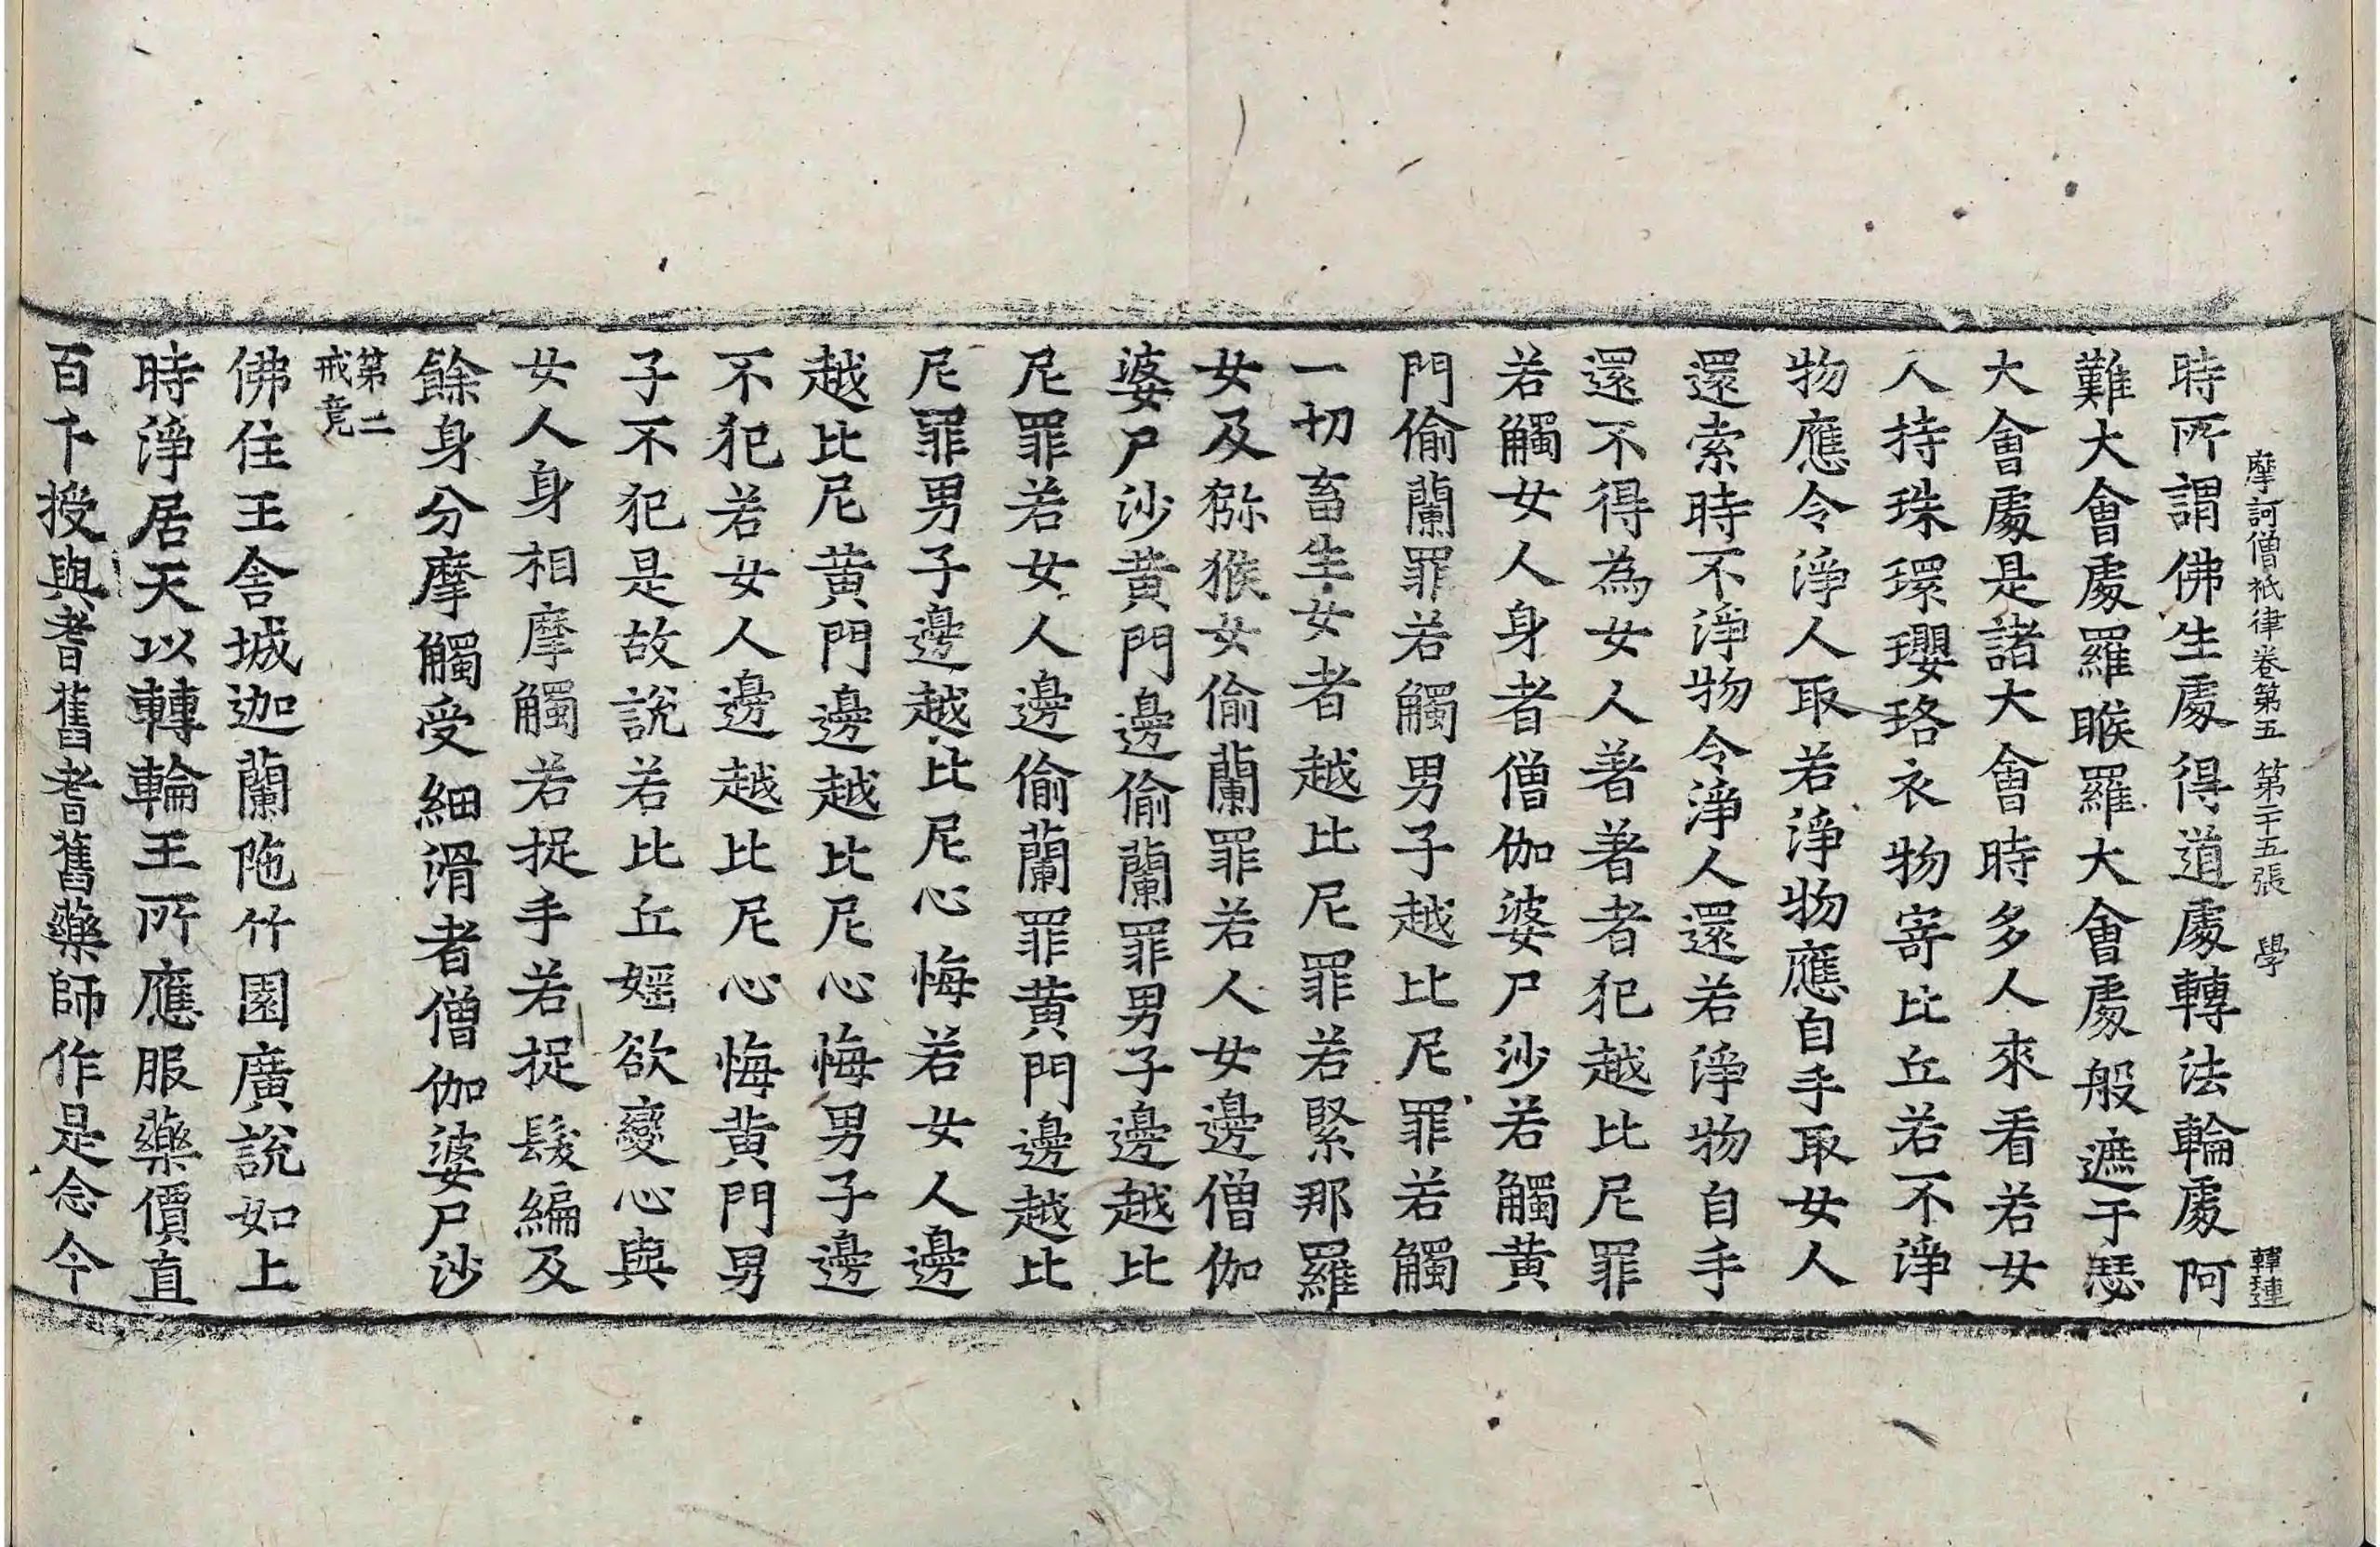 摩訶僧祇律卷第五 第二十五張 學 韓璉
時所謂佛生處得道處轉法輪處阿
難大會處羅睺羅大會處般遮于瑟
大會處是諸大會時多人來看若女
人持珠環瓔珞衣物寄比丘若不淨
物應令淨人取若淨物應自手取女人
還索時不淨物令淨人還若淨物自手
還不得為女人著著者犯越比尼罪
若觸女人身者僧伽婆尸沙若觸黃
門偷蘭罪若觸男子越比尼罪若觸
一切畜生女者越比尼罪若緊那羅
女及獼猴女偷蘭罪若人女邊僧伽
婆尸沙黃門邊偷蘭罪男子邊越比
尼罪若女人邊偷蘭罪黃門邊越比
尼罪男子邊越比尼心悔若女人邊
越比尼黃門邊越比尼心悔男子邊
不犯若女人邊越比尼心悔黃門男
子不犯是故說若比丘婬欲變心與
女人身相摩觸若捉手若捉髮編及
餘身分摩觸受細滑者僧伽婆尸沙
第二
戒竟
佛住王舍城迦蘭陁竹園廣說如上
時淨居天以轉輪王所應服藥價直
百千授與耆舊耆舊藥師作是念今